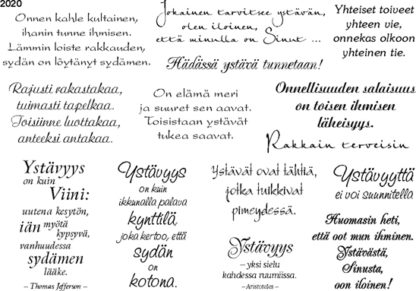 2020
Onnen kahle kultainen,
ihanin tunne ihmisen.
Lämmin loiste rakkauden,
sydän on löytänyt sydämen.
Jokainen tarvitsee ystävän,
olen iloinen,
että minulla on Sinut ...
Hädässä ystävä tunnetaan!
Yhteiset toiveet
yhteen vie,
onnekas olkoon
yhteinen tie.
Rajusti rakastakaa,
tuimasti tapelkaa.
Toisiinne luottakaa,
anteeksi antakaa.
On elämä meri
ja suuret sen aavat.
Toisistaan ystävät
tukea saavat.
Onnellisuuden salaisuus
on toisen ihmisen
läheisyys.
Rakkain terveisin
Ystävyys
on kuin
Viini:
uutena kesytön,
iän myötä
kypsyvä,
vanhuudessa
sydämen
lääke.
– Thomas Jefferson –
Ystävyys
on kuin
ikkunalla palava
kynttilä
joka kertoo, että
sydän
on
kotona.
Ystävät ovat tähtiä,
jotka tuikkivat
pimeydessä.
Ystävyys
– yksi sielu
kahdessa ruumiissa.
– Aristoteles –
Ystävyyttä
ei voi suunnitella
Huomasin heti,
että oot mun ihminen.
Ystävästä,
Sinusta,
oon iloinen!